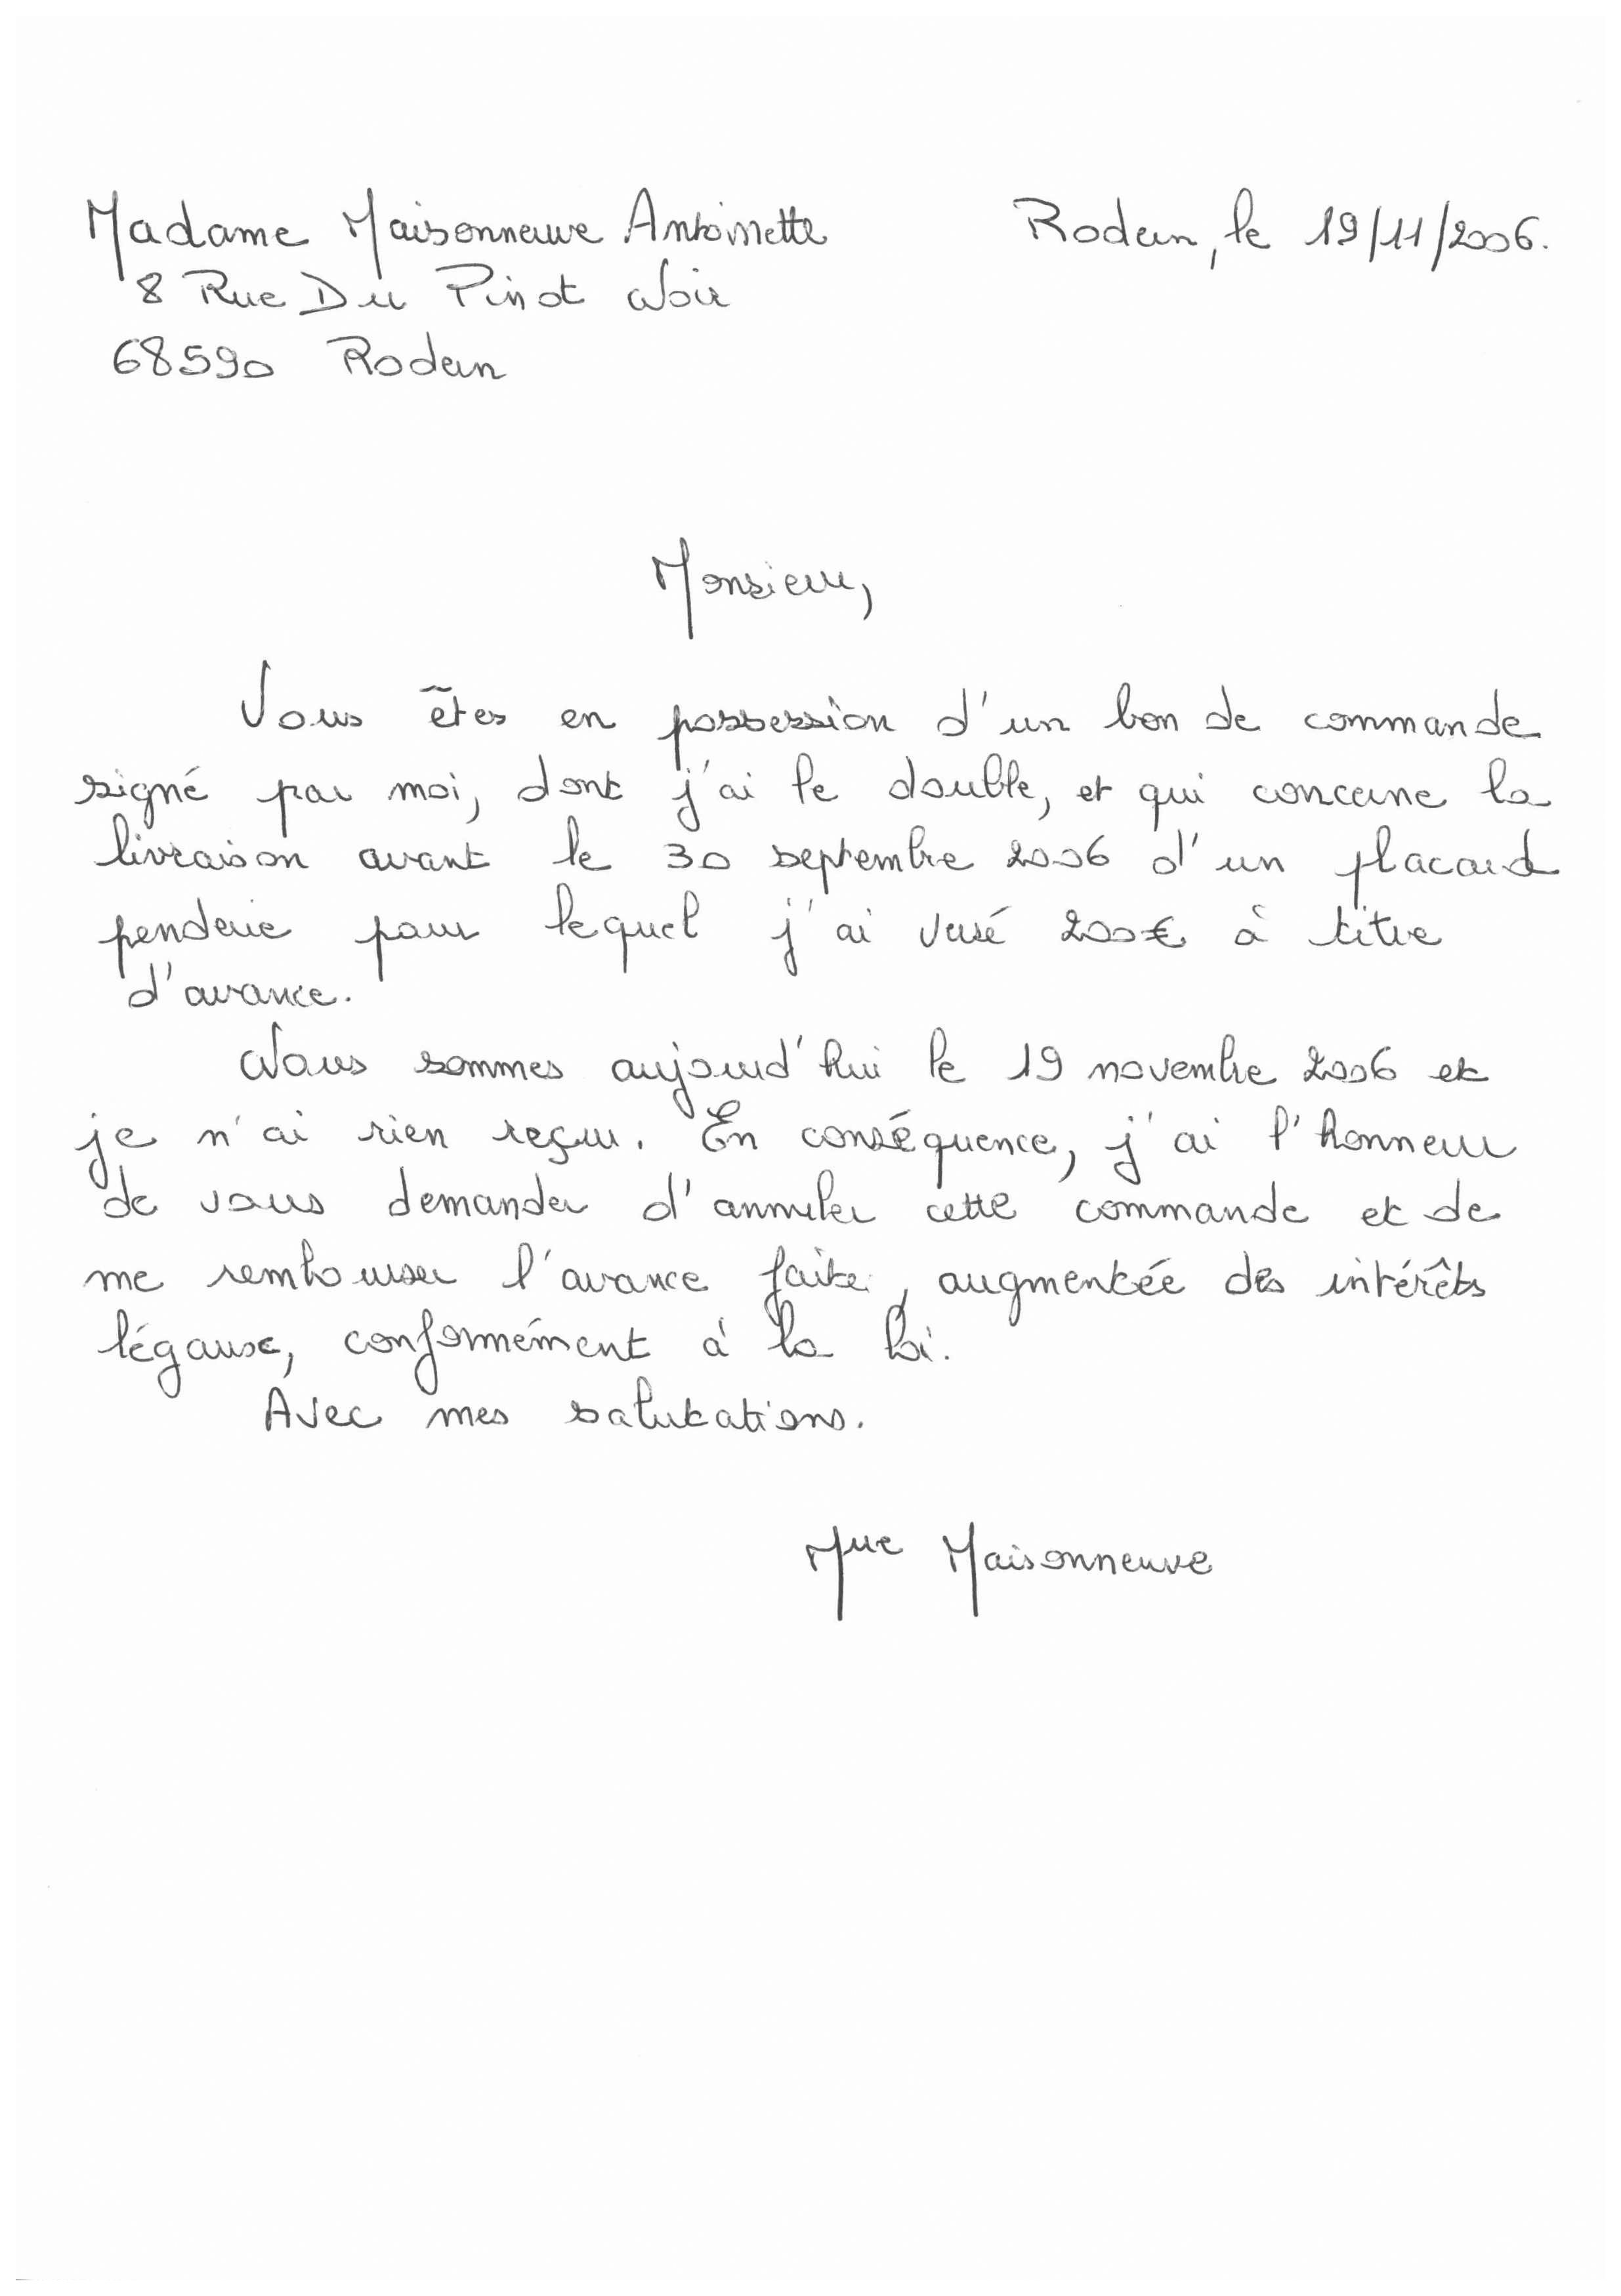 Madame Maisonneuve Antoinette
Rodern, le 19/11/2006.
8 Rue Du Pinot Noir
68590 Rodern
Monsieur,
Vous êtes en possession d'un bon de commande
signé par moi, dont j'ai le double, et qui concerne la
livraison avant le 30 septembre 2006 d'un placard
penderie pour lequel j'ai versé 200€ à titre
d'avance.
Nous sommes aujourd'hui le 19 novembre 2006 et
je n'ai rien reçu. En conséquence, j'ai l'honneur
de vous demander d'annuler cette commande et de
me rembourser l'avance faite, augmentée des intérêts
légaux, conformément à la loi.
Avec mes salutations.
Maisonneuve